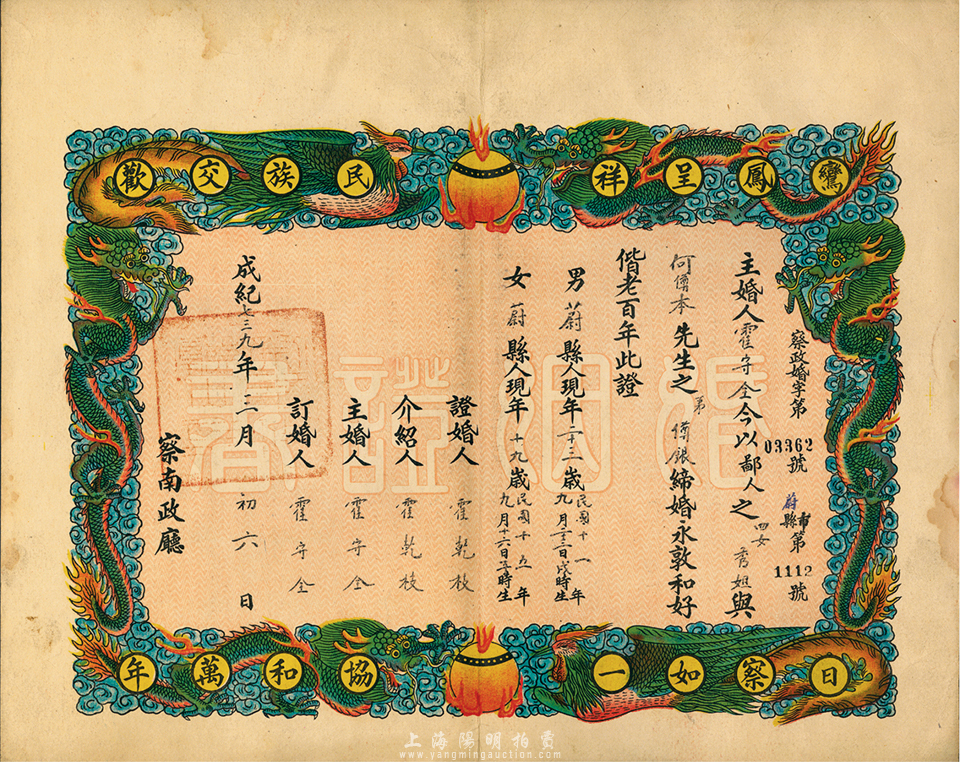 鸞鳳呈祥
民族交歡
察政婚字第03362號 蔚縣市第1112號
主婚人霍守全今以鄙人之四女秀姐與
何俻本先生之弟俻銀締婚永敦和好
偕老百年此證
男蔚縣人現年二十三歲民國十一年九月二十三日戌時生
女蔚縣人現年十九歲民國十五年九月十六日子時生
證婚人 霍乾枝
介紹人 霍乾枝
主婚人 霍守全
訂婚人 霍守全
成紀七三九年十二月初六日
察南政廳
婚姻證書
日察如一
協和萬年
上海陽明拍賣
www.yangmingauction.com